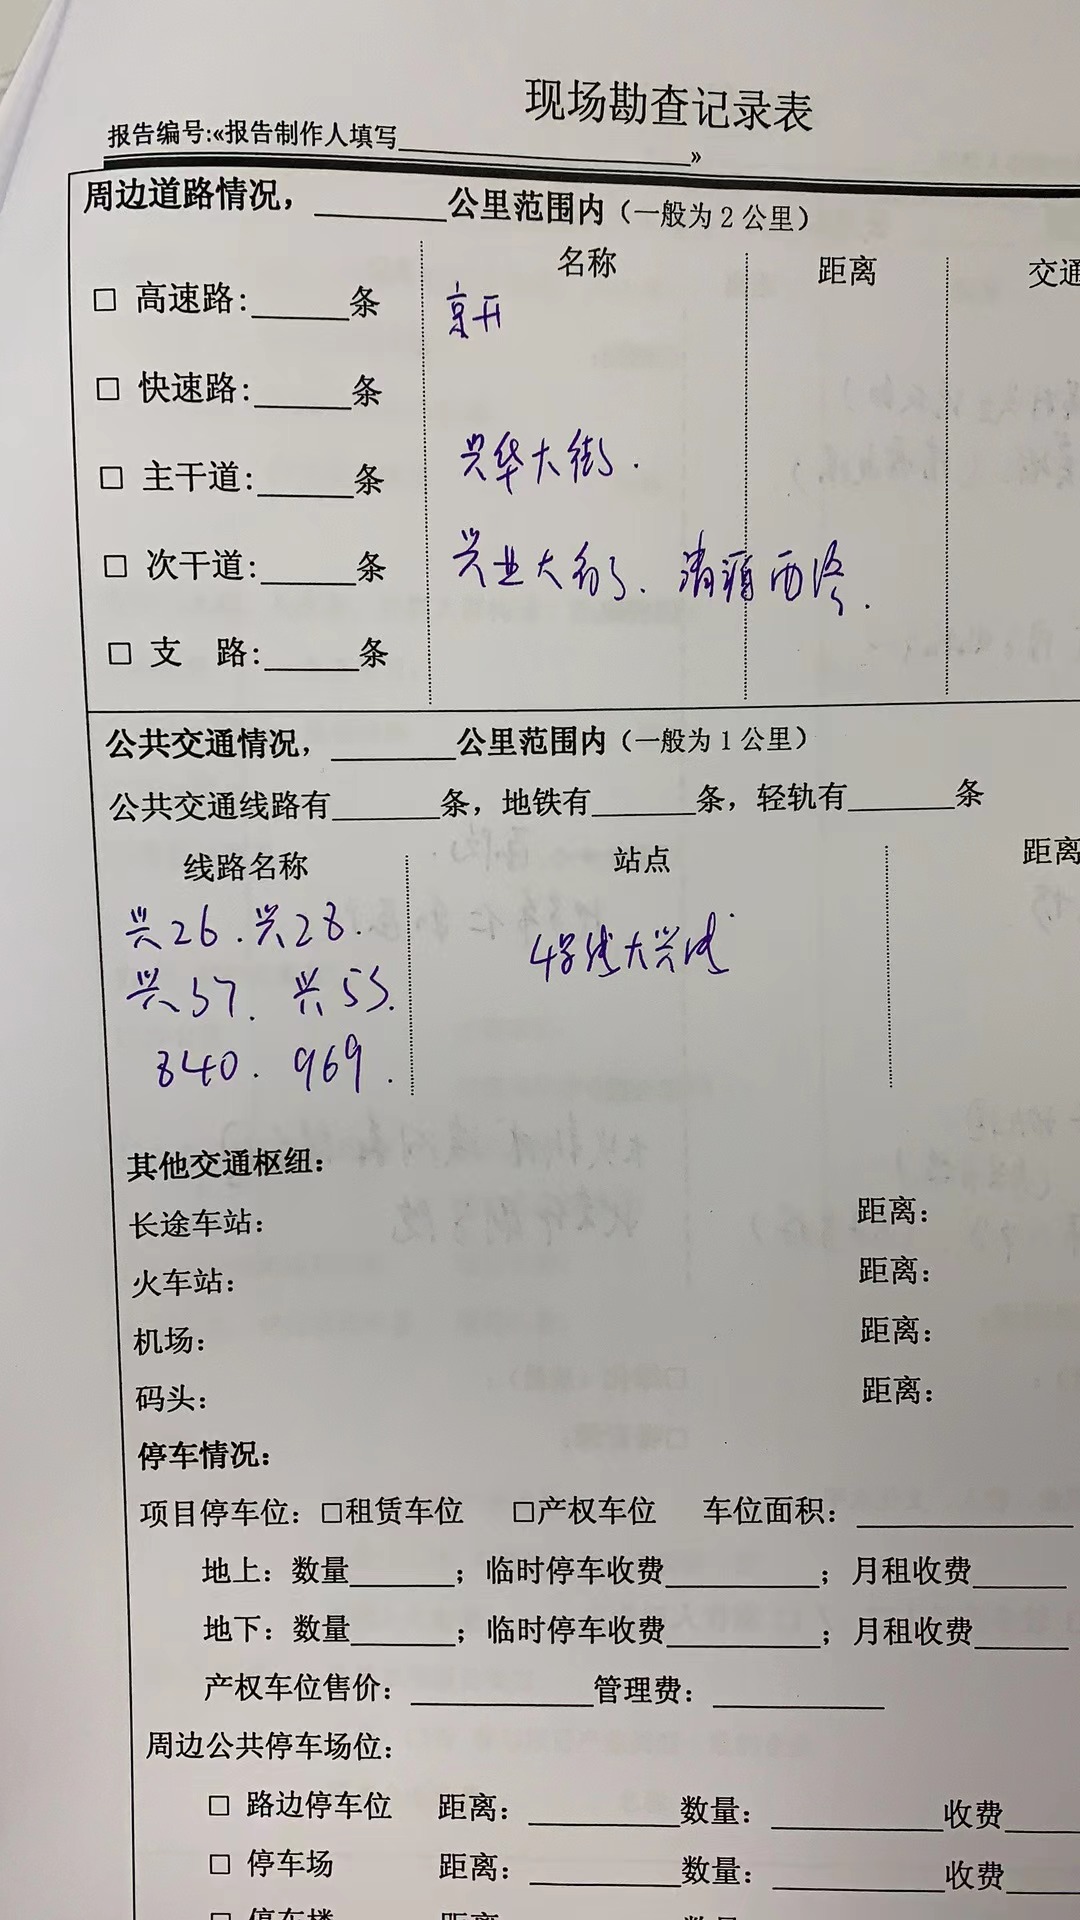 现场勘查记录表
报告编号:«报告制作人填写____________________»
周边道路情况，________公里范围内（一般为2公里）
名称 距离 交通
□ 高速路:______条 京开
□ 快速路:______条
□ 主干道:______条 兴华大街.
□ 次干道:______条 兴业大街、清源西路.
□ 支 路:______条
公共交通情况，________公里范围内（一般为1公里）
公共交通线路有_______条，地铁有_______条，轻轨有_______条
线路名称 站点 距离
兴26.兴28. 4号线大兴线
兴37. 兴53.
840. 969.
其他交通枢纽：
长途车站： 距离：
火车站： 距离：
机场： 距离：
码头： 距离：
停车情况：
项目停车位：□租赁车位 □产权车位 车位面积：______________
地上：数量_______；临时停车收费__________；月租收费______
地下：数量_______；临时停车收费__________；月租收费______
产权车位售价：____________管理费：___________
周边公共停车场位：
□ 路边停车位 距离：__________数量：___________收费_____
□ 停车场 距离：__________数量：___________收费_____
□ 停车楼 距离 数量